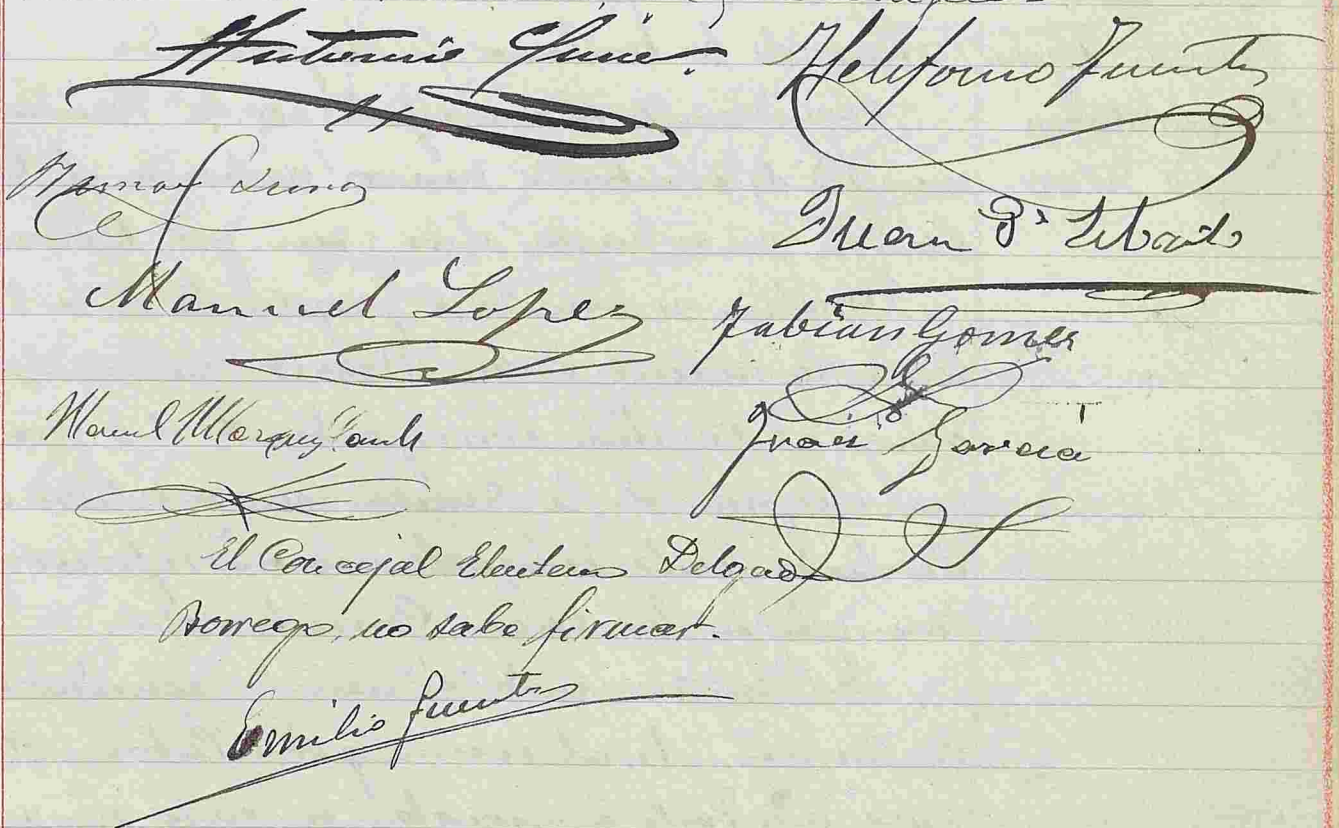 Antonio
Ildefonso Fuentes
Ramon Luna
Juan
Manuel Lopez
Fabian Gomez
Manuel Marquez
Juan Garcia
El Concejal Eleuterio Delgado
Borrego, no sabe firmar.
Emilio Fuentes